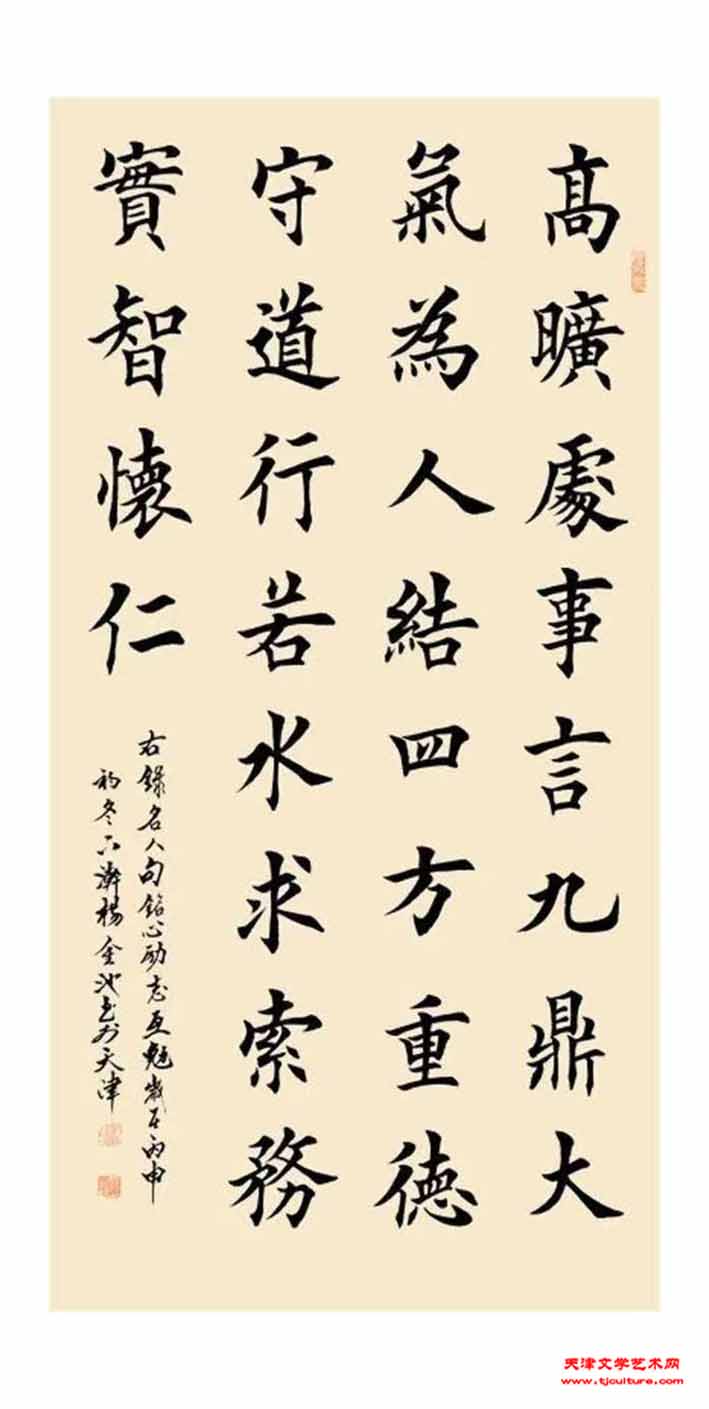 高曠處事言九鼎大
氣為人結四方重德
守道行若水求索務
實智懷仁
右錄名人句銘心励志互勉歲在丙申
初冬 楊金池書於天津
天津文学艺术网
www.tjculture.com